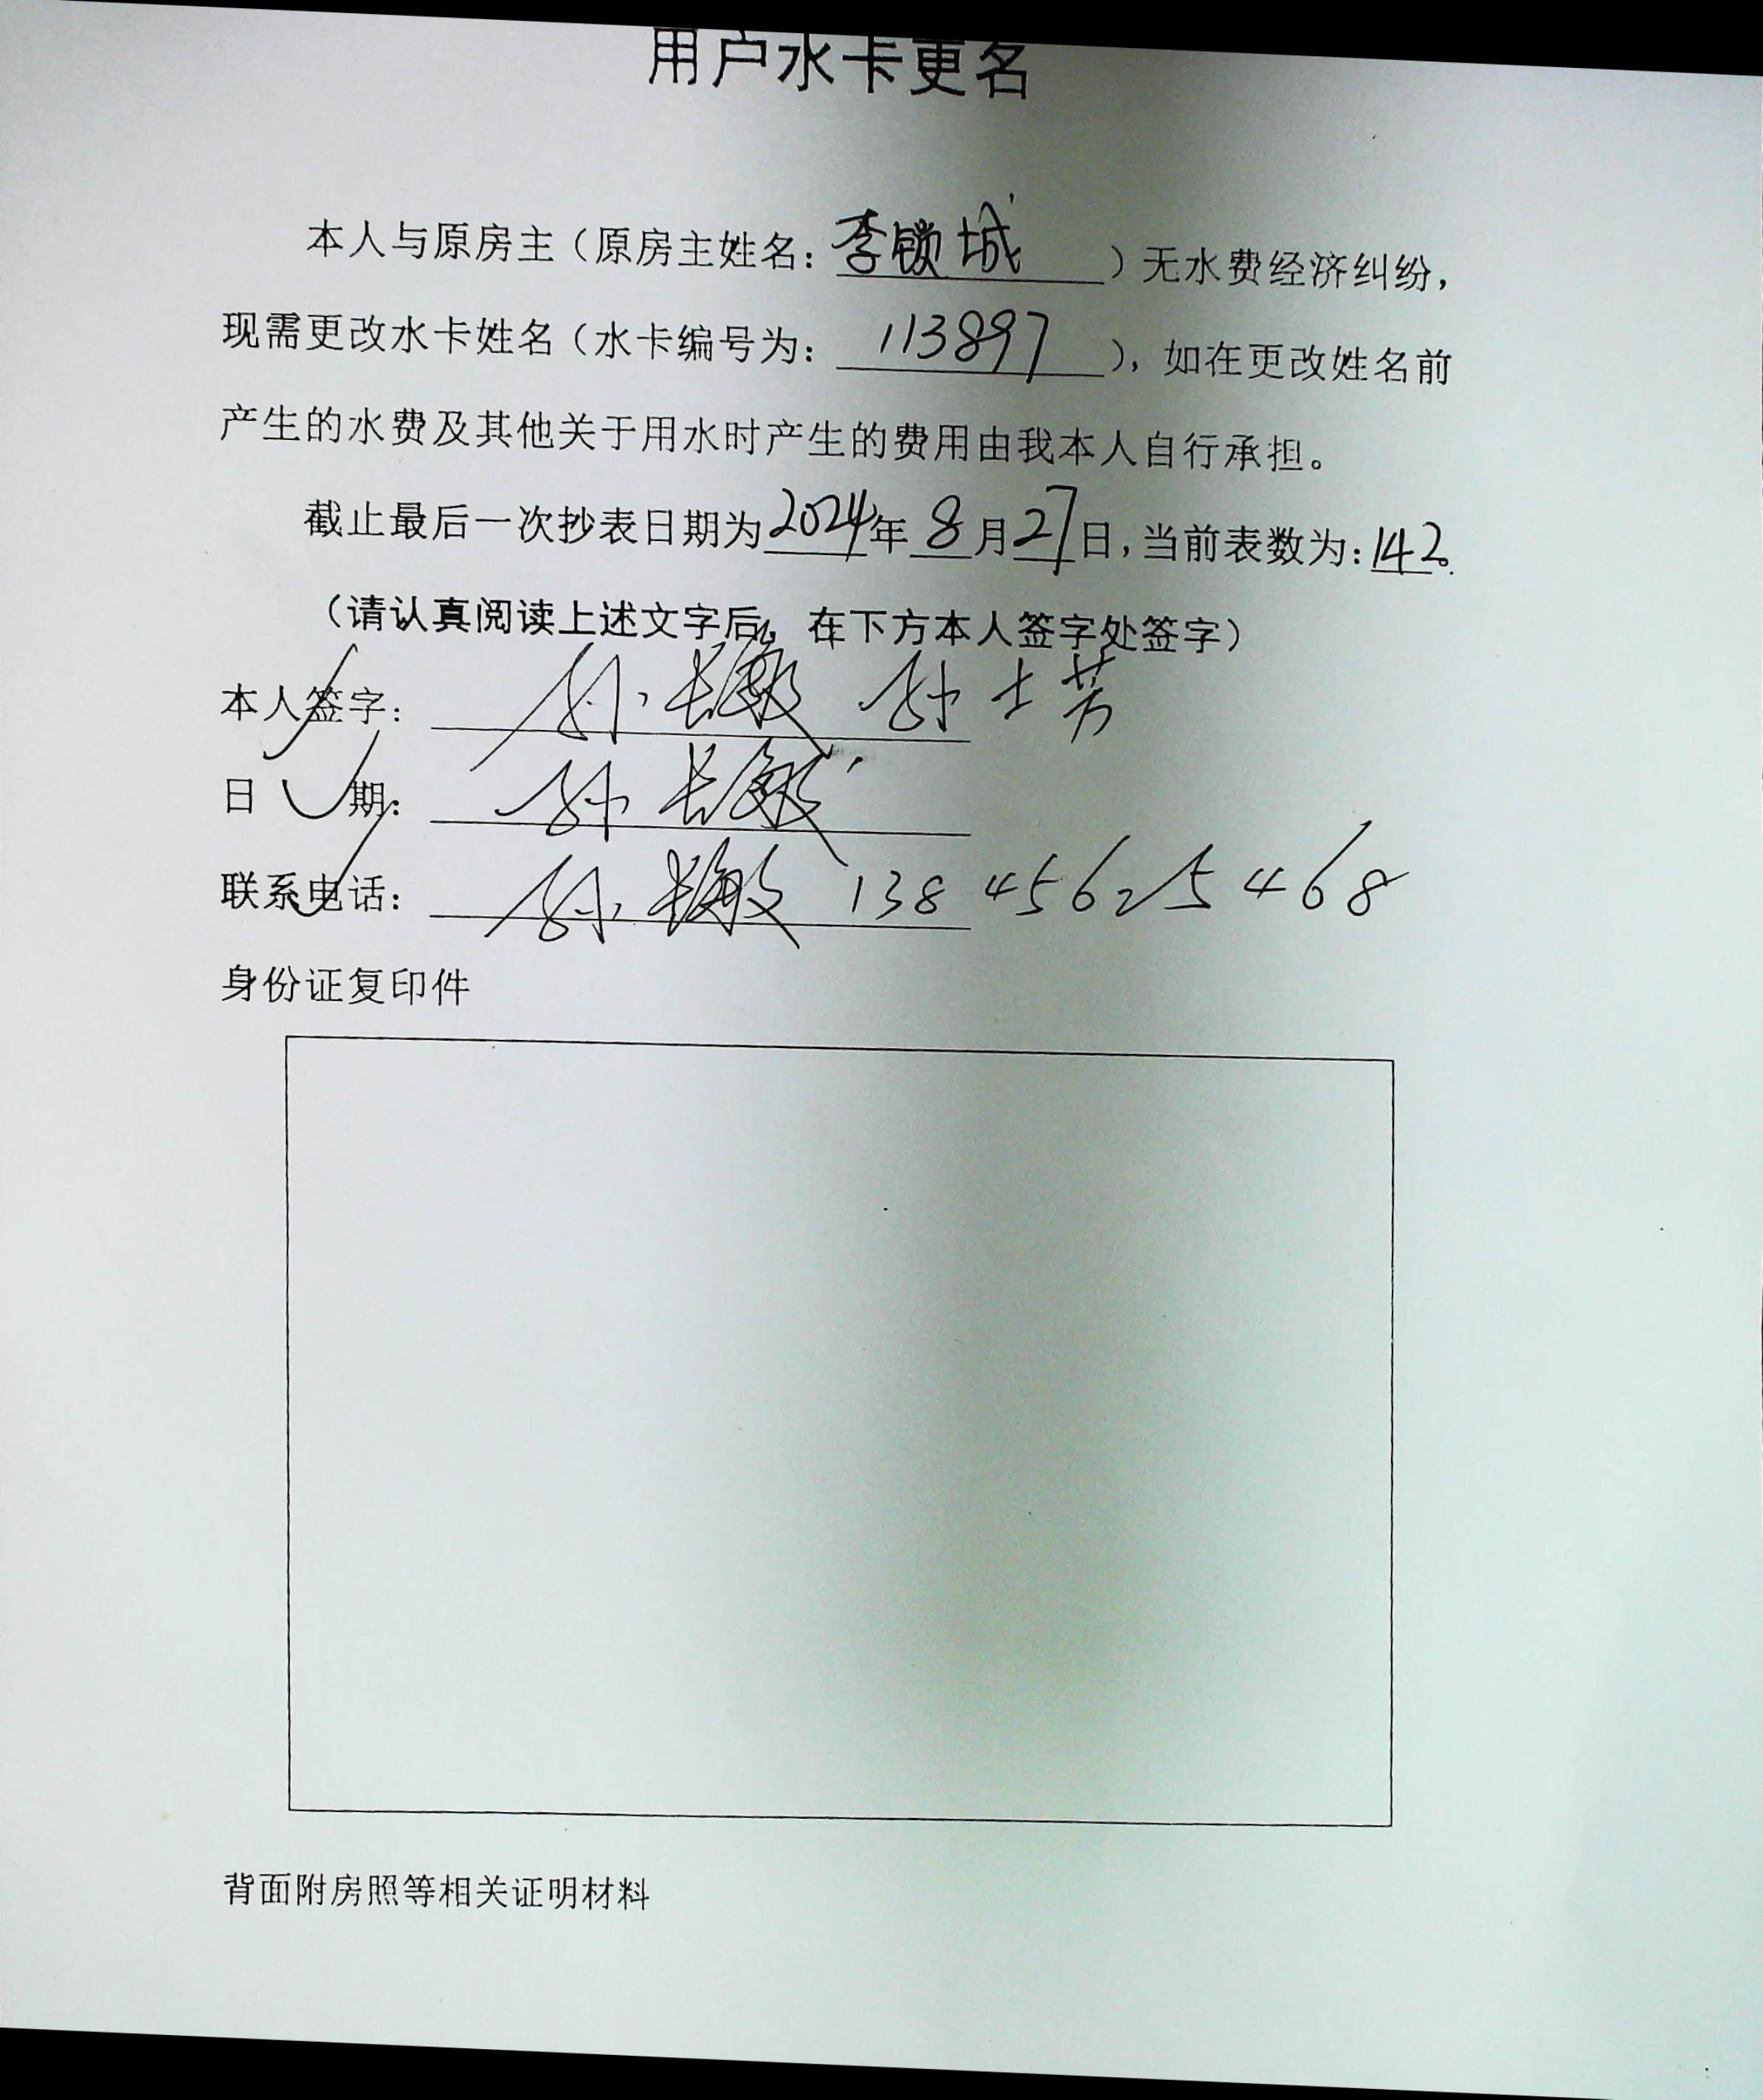 用户水卡更名
本人与原房主（原房主姓名：李锁城）无水费经济纠纷，
现需更改水卡姓名（水卡编号为：113897），如在更改姓名前
产生的水费及其他关于用水时产生的费用由我本人自行承担。
截止最后一次抄表日期为2024年8月27日，当前表数为：142。
（请认真阅读上述文字后，在下方本人签字处签字）
本人签字：孙长敏 孙士芳
日期：孙长敏
联系电话：孙长敏 13845625468
身份证复印件
背面附房照等相关证明材料